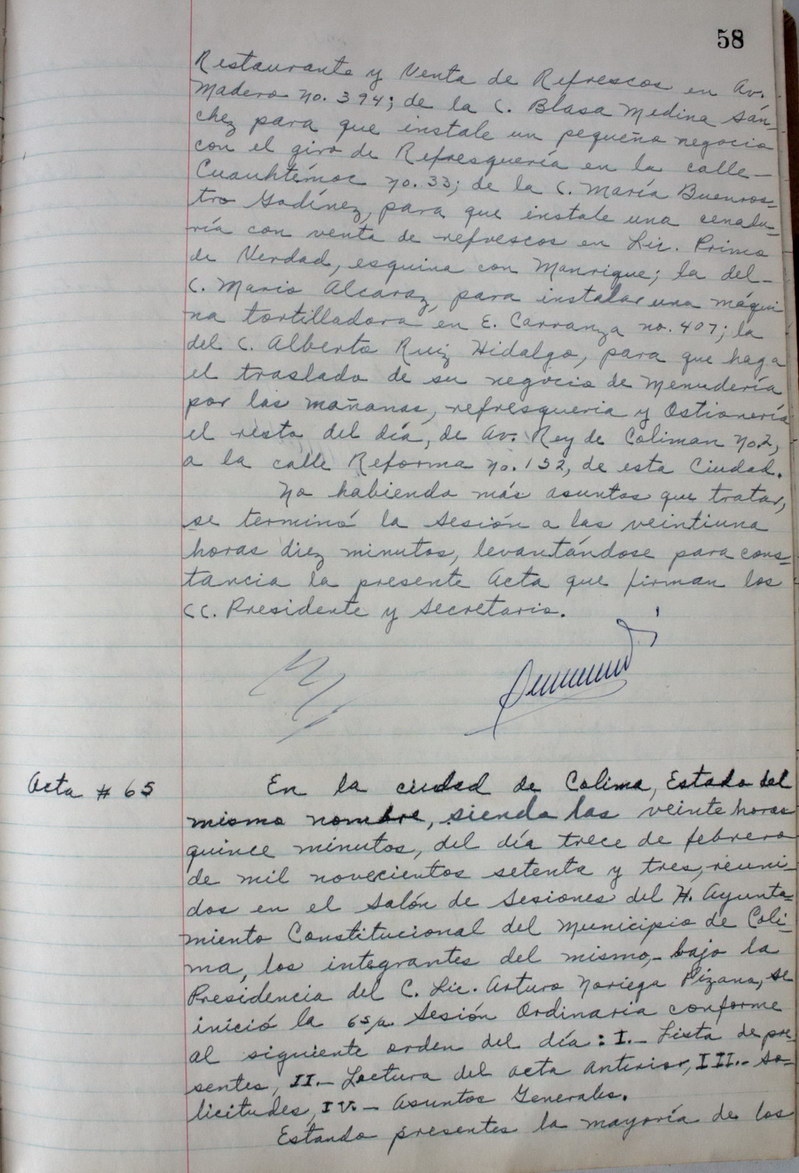 58
Restaurante y Venta de Refrescos en Av.
Madero No. 394; de la C. Blasa Medina Sán-
chez para que instale un pequeño negocio
con el giro de Refresquería en la calle-
Cuauhtémoc No. 33; de la C. María Buenros-
tro Godínez, para que instale una cenadu-
ría con venta de refrescos en Lic. Primo
de Verdad, esquina con Manrique; la del-
C. Mario Alcaraz, para instalar una máqui
na tortilladora en E. Carranza no. 407; la
del C. Alberto Ruiz Hidalgo, para que haga
el traslado de su negocio de Menudería
por las mañanas, refresqueria y Ostionería
el resto del día, de Av. Rey de Coliman No. 2,
a la calle Reforma No. 152, de esta Ciudad.
No habiendo más asuntos que tratar,
se terminó la Sesión a las veintiuna
horas diez minutos, levantándose para cons-
tancia la presente Acta que firman los
CC. Presidente y Secretario.
Acta # 65
En la ciudad de Colima, Estado del
mismo nombre, siendo las veinte horas
quince minutos, del día trece de febrero
de mil novecientos setenta y tres, reuni-
dos en el Salón de Sesiones del H. Ayunta-
miento Constitucional del Municipio de Coli-
ma, los integrantes del mismo,- bajo la
Presidencia del C. Lic. Arturo Noriega Pizano, se
inició la 65/a Sesión Ordinaria conforme
al siguiente orden del día: I.- Lista de pre-
sentes, II.- Lectura del acta Anterior, III.- So-
licitudes, IV.- Asuntos Generales.
Estando presentes la mayoría de los